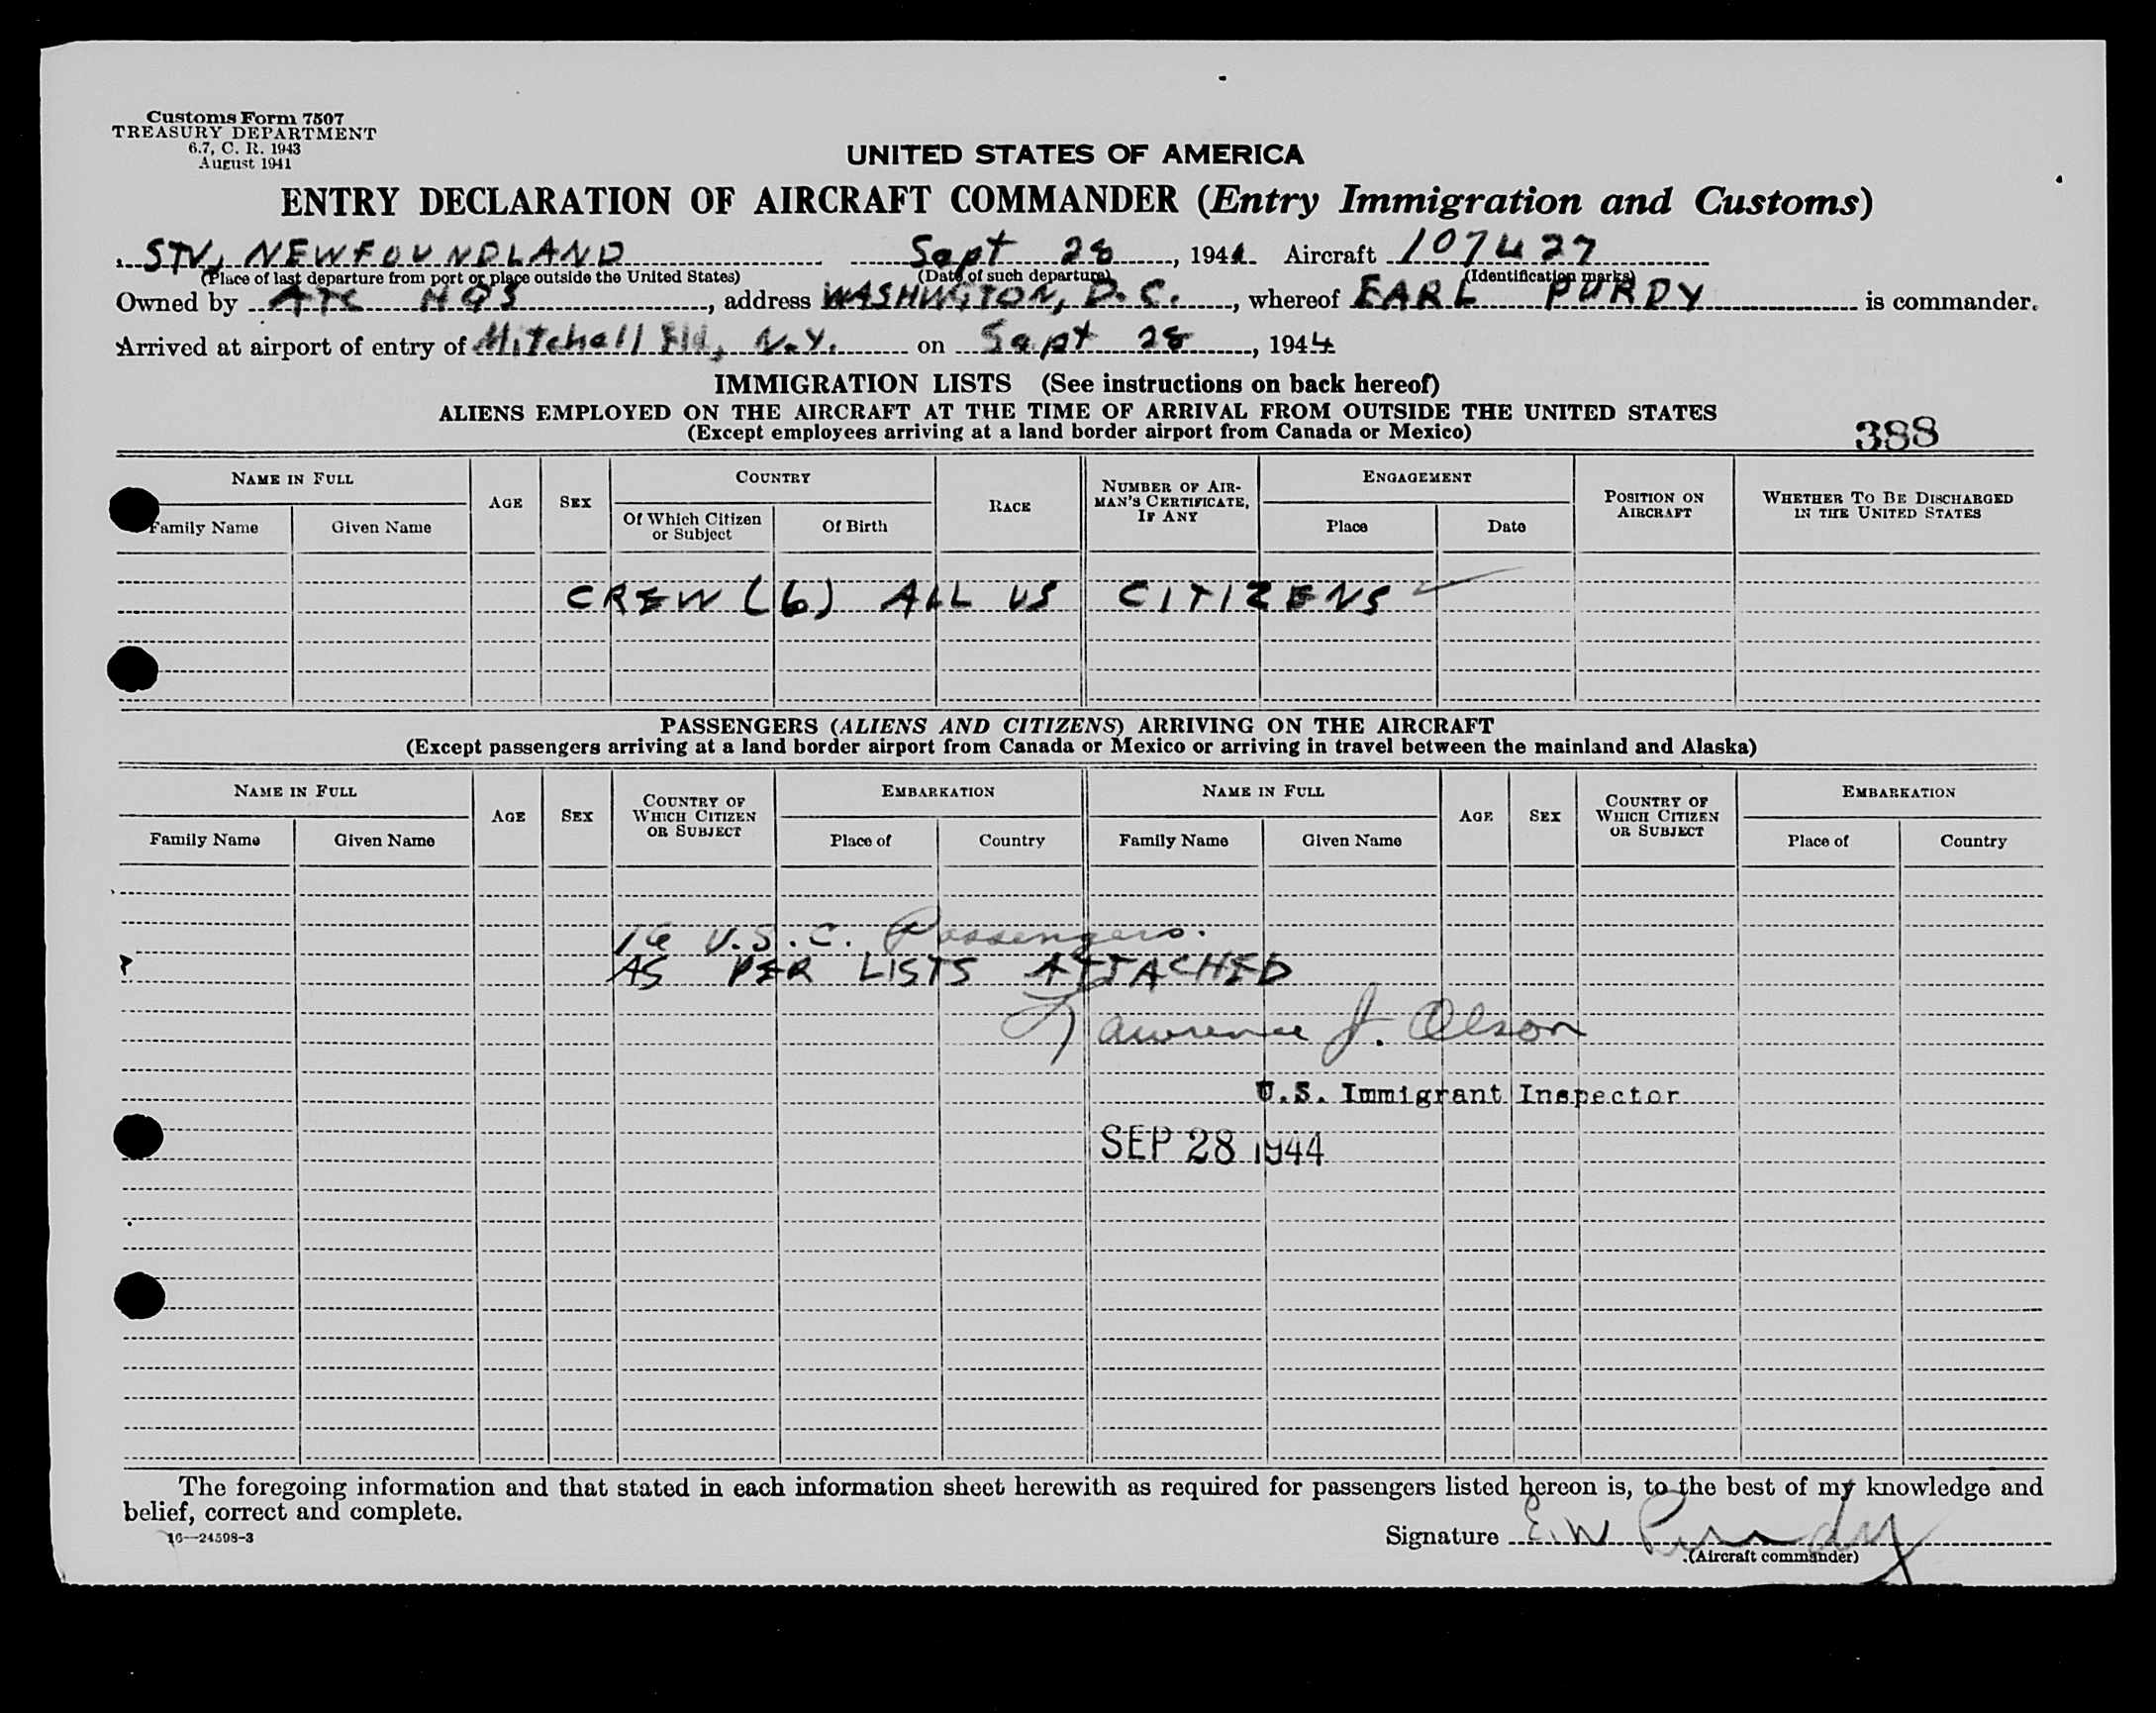 Customs Form 7507
TREASURY DEPARTMENT
6.7, C. R. 1943
August 1941
UNITED STATES OF AMERICA
ENTRY DECLARATION OF AIRCRAFT COMMANDER (Entry Immigration and Customs)
STV, NEWFOUNDLAND Sept 28, 1944 Aircraft 107427
(Place of last departure from port or place outside the United States) (Date of such departure) (Identification marks)
Owned by ATC HQS, address WASHINGTON, D.C., whereof EARL PURDY is commander.
Arrived at airport of entry of Mitchell Fld, N.Y. on Sept 28, 1944
IMMIGRATION LISTS (See instructions on back hereof)
ALIENS EMPLOYED ON THE AIRCRAFT AT THE TIME OF ARRIVAL FROM OUTSIDE THE UNITED STATES
(Except employees arriving at a land border airport from Canada or Mexico)
388
NAME IN FULL AGE SEX COUNTRY RACE NUMBER OF AIRMAN'S CERTIFICATE, IF ANY ENGAGEMENT POSITION ON AIRCRAFT WHETHER TO BE DISCHARGED IN THE UNITED STATES
Family Name Given Name Of Which Citizen or Subject Of Birth Place Date
CREW (6) ALL US CITIZENS
PASSENGERS (ALIENS AND CITIZENS) ARRIVING ON THE AIRCRAFT
(Except passengers arriving at a land border airport from Canada or Mexico or arriving in travel between the mainland and Alaska)
NAME IN FULL AGE SEX COUNTRY OF WHICH CITIZEN OR SUBJECT EMBARKATION NAME IN FULL AGE SEX COUNTRY OF WHICH CITIZEN OR SUBJECT EMBARKATION
Family Name Given Name Place of Country Family Name Given Name Place of Country
16 U.S.C. Passengers.
AS PER LISTS ATTACHED
Lawrence J. Olson
U.S. Immigrant Inspector
SEP 28 1944
The foregoing information and that stated in each information sheet herewith as required for passengers listed hereon is, to the best of my knowledge and
belief, correct and complete.
16—24598-3
Signature E.W. Purdy
(Aircraft commander)